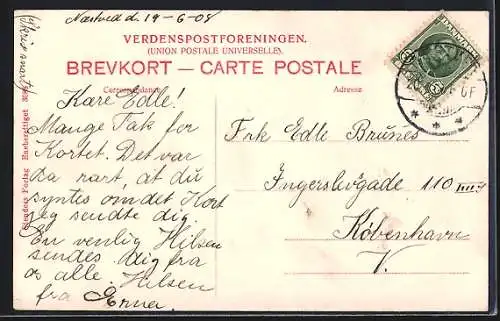 Næstved d. 19-6-08
Skriv snart
VERDENSPOSTFORENINGEN.
(UNION POSTALE UNIVERSELLE).
BREVKORT — CARTE POSTALE
Correspondance
Adresse
Kære Edle!
Mange Tak for
Kortet. Det var
da rart, at du
syntes om det Kort
jeg sendte dig.
En venlig Hilsen
sendes dig fra
os alle. Hilsen
fra Erna.
Frk Edle Brunés
Ingerslevgade 110
København
V.
Stenders Forlag Eneberettiget